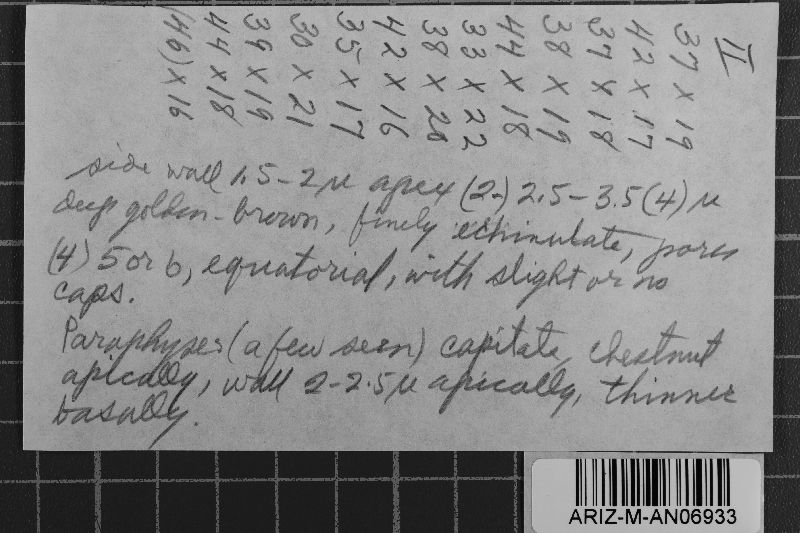 II
37 x 19
42 x 17
37 x 18
38 x 19
44 x 18
33 x 22
38 x 20
42 x 16
35 x 17
30 x 21
39 x 19
44 x 18
(46) x 16
side wall 1.5-2µ apex (2-) 2.5-3.5(4)µ
deep golden-brown, finely echinulate, pores
(4) 5 or 6, equatorial, with slight or no
caps.
Paraphyses (a few seen) capitate, chestnut
apically, wall 2-2.5µ apically, thinner
basally.
ARIZ-M-AN06933